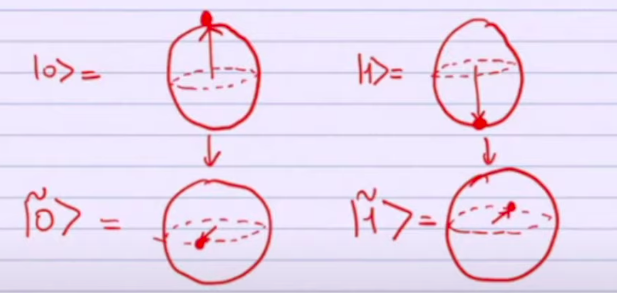 |0>= |1>=
|0̃> = |1̃>=